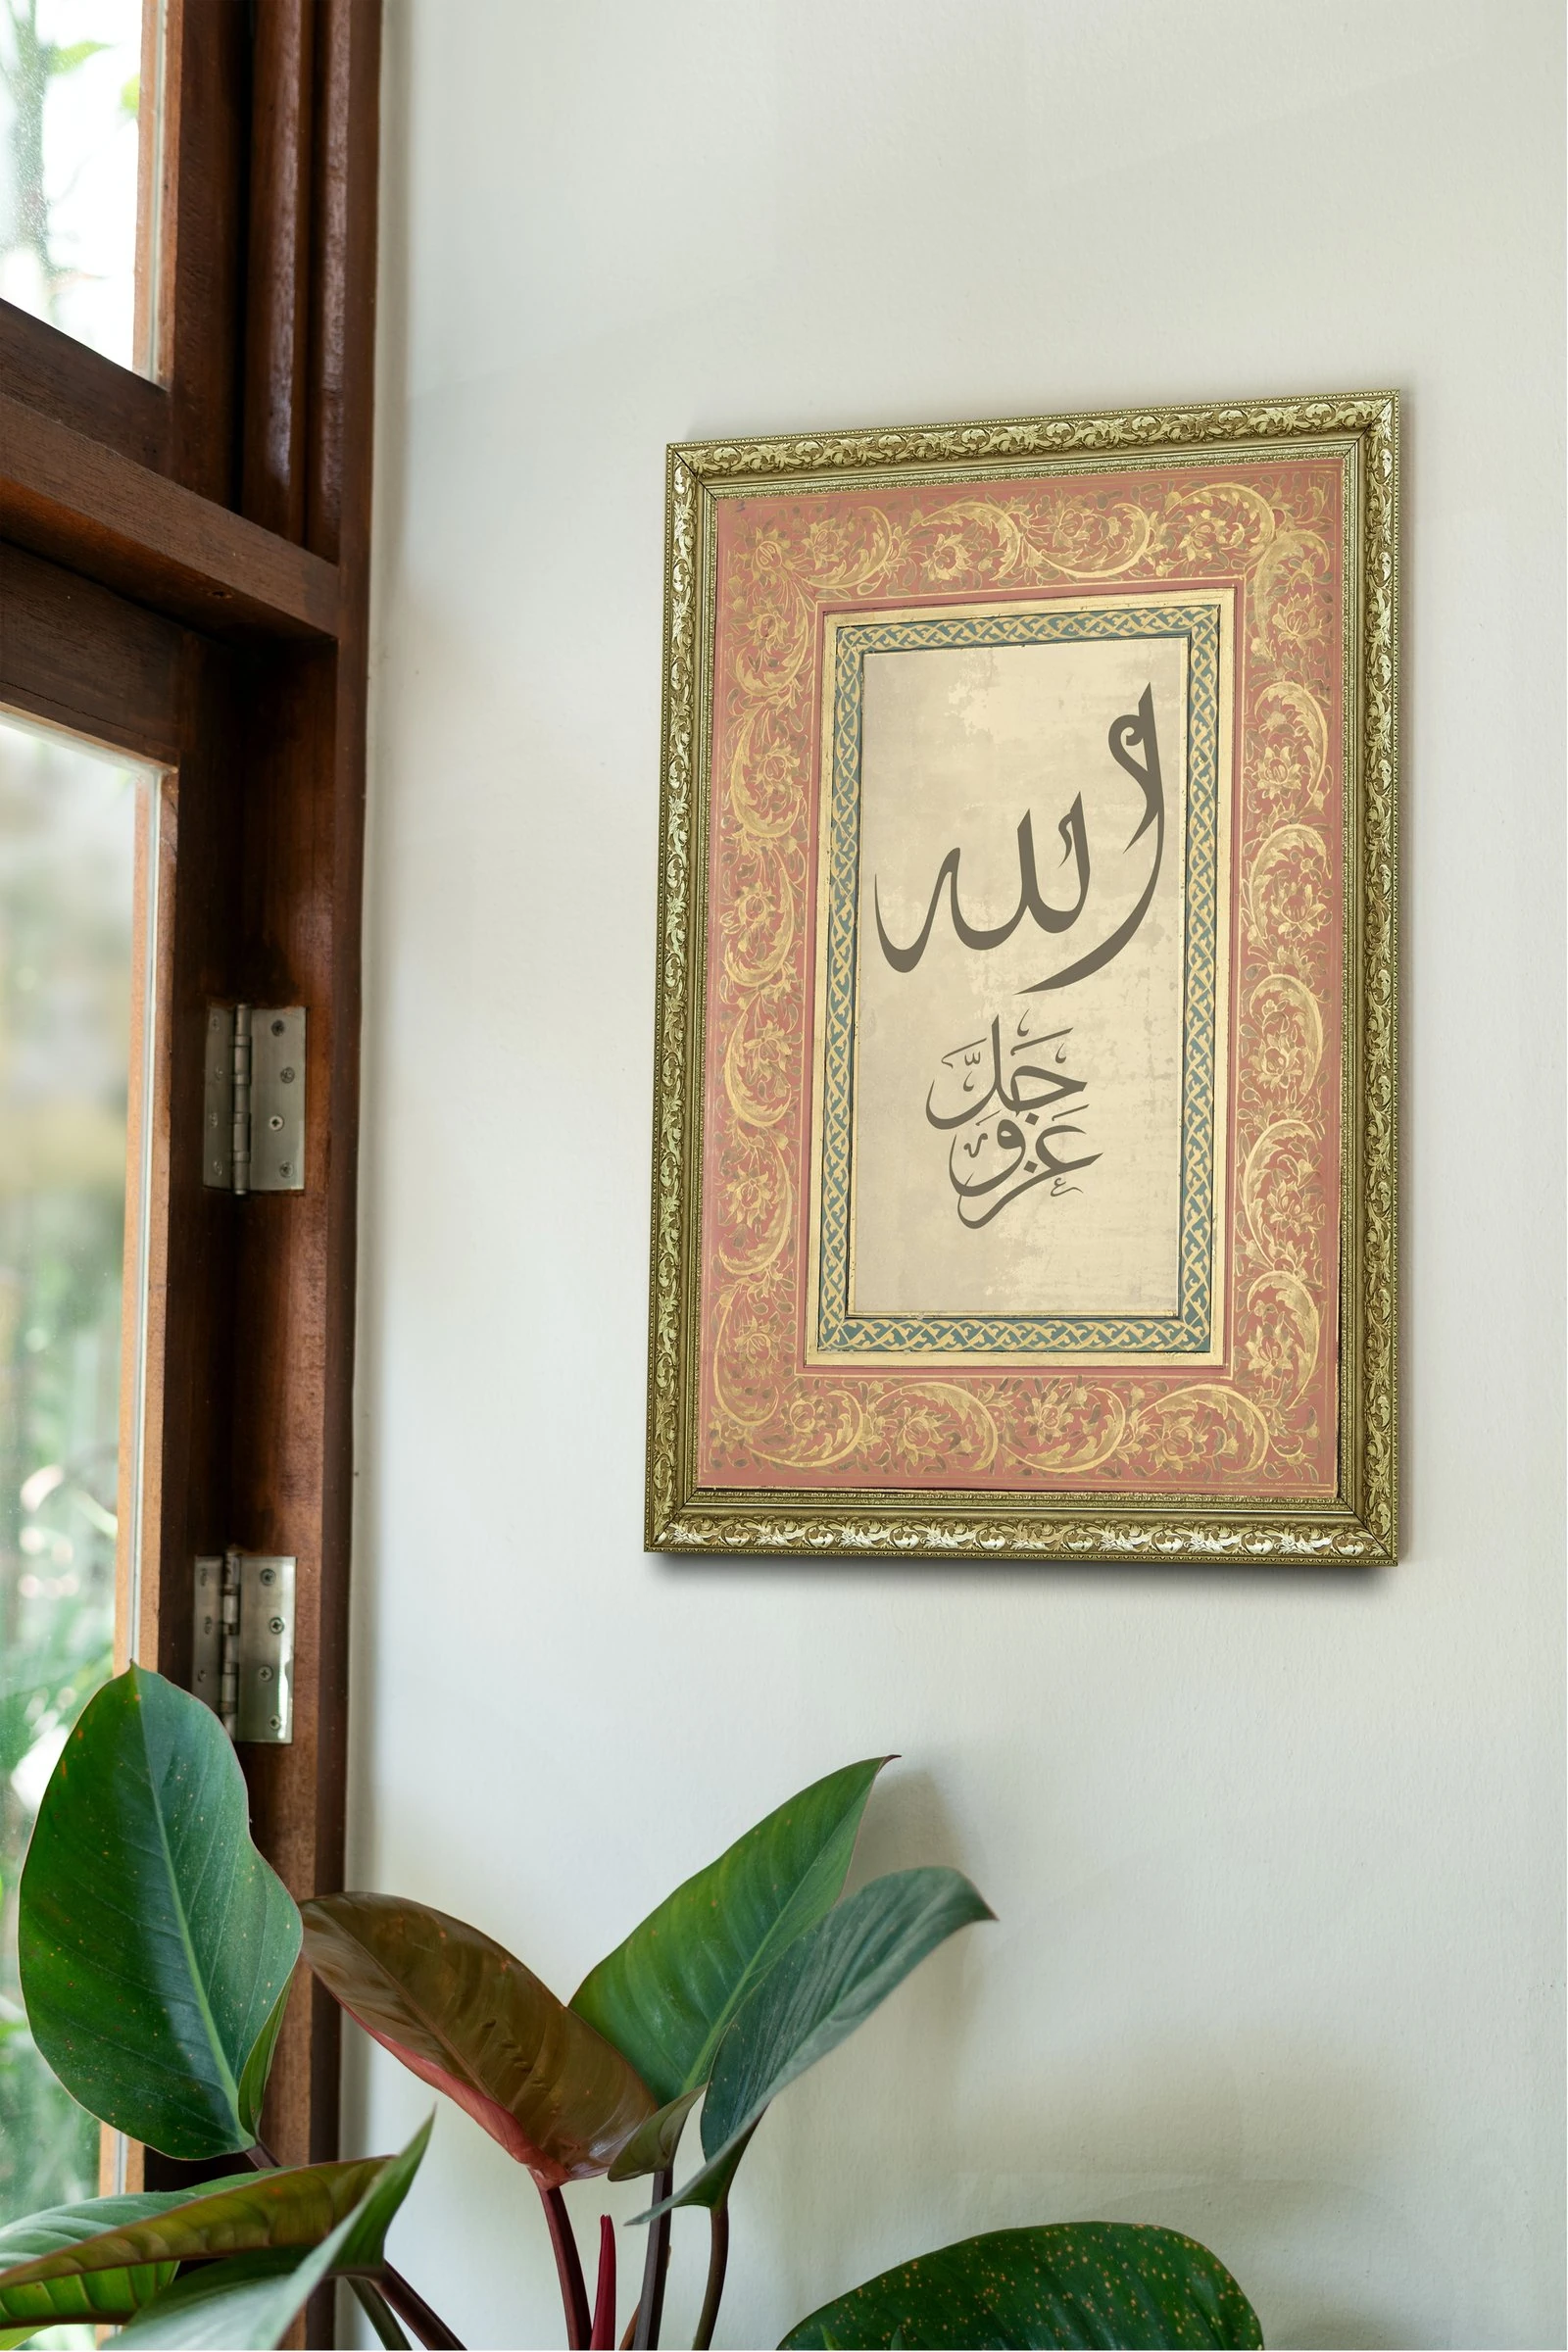 الله
عَزَّ وَجَلَّ